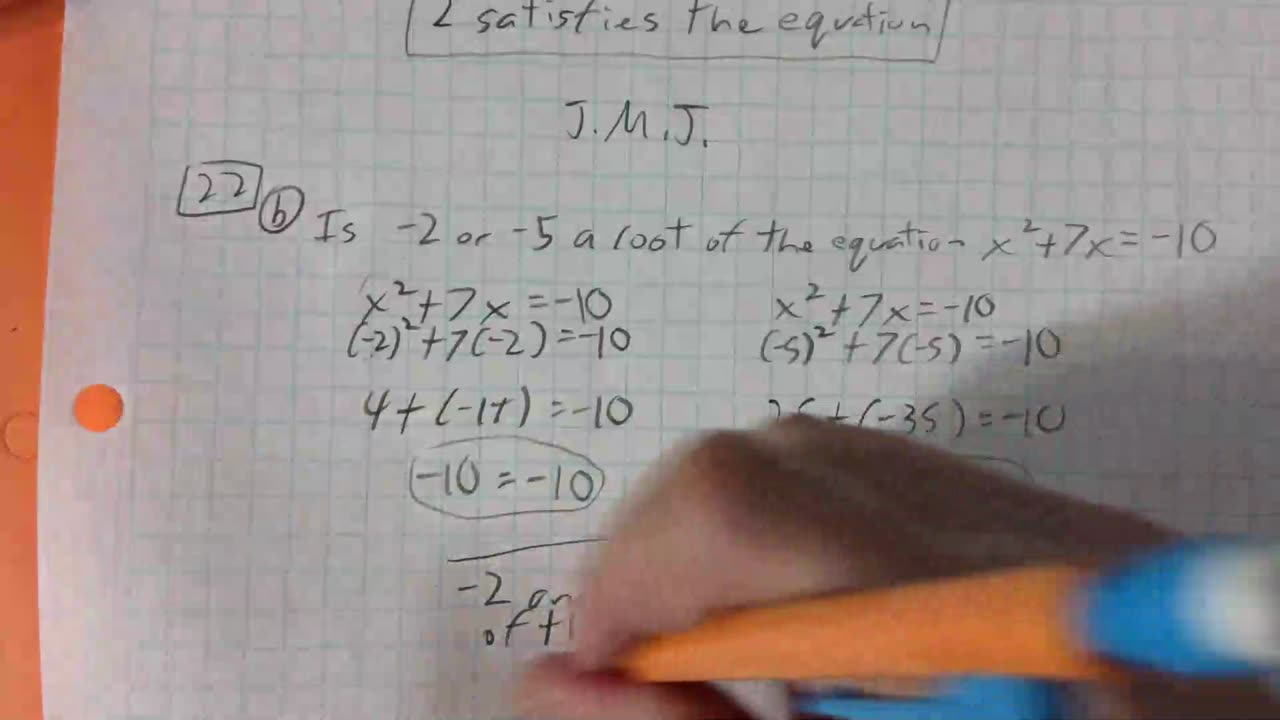 2 satisfies the equation
J.M.J.
22 b Is -2 or -5 a root of the equation x²+7x=-10
x²+7x=-10 x²+7x=-10
(-2)²+7(-2)=-10 (-5)²+7(-5)=-10
4+(-14)=-10 +(-35)=-10
-10=-10
-2
of